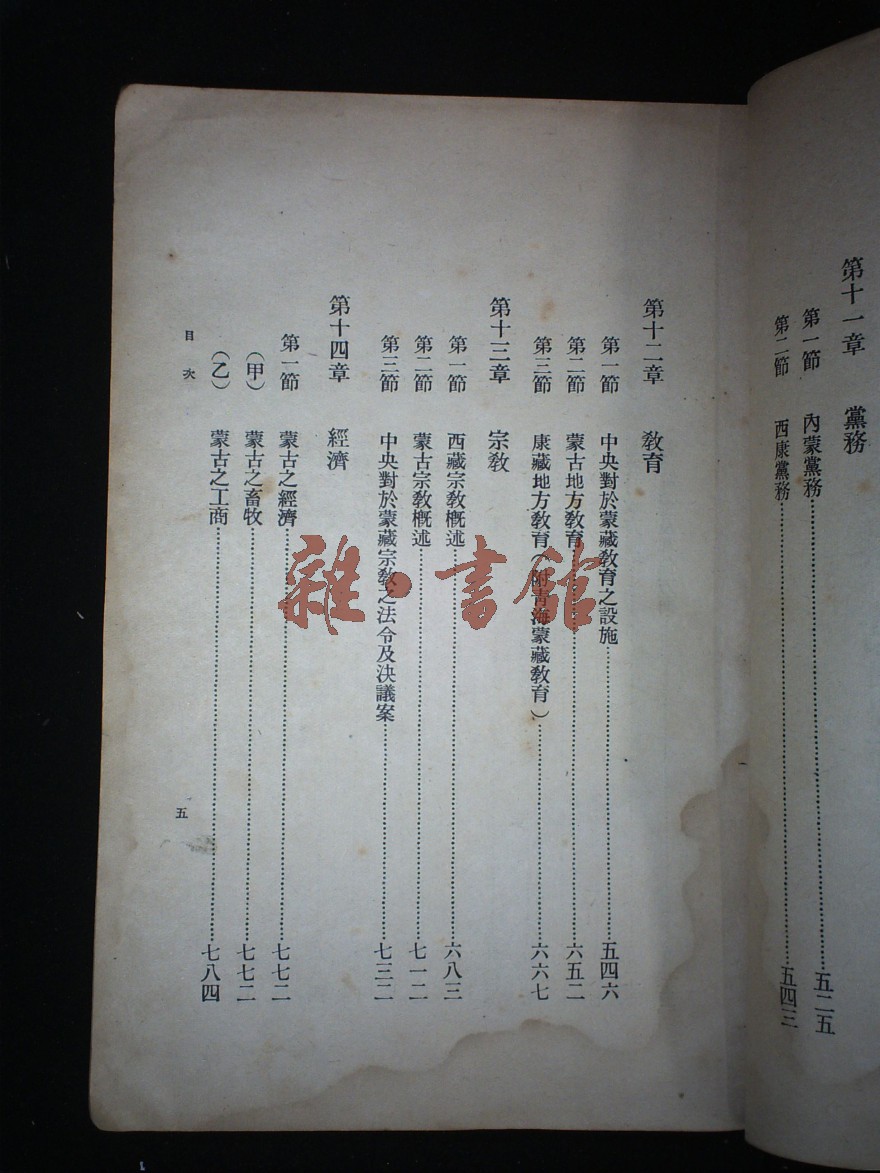 第十一章　黨務
第一節　內蒙黨務……五二五
第二節　西康黨務……五四三
第十二章　教育
第一節　中央對於蒙藏教育之設施……五四六
第二節　蒙古地方教育……六五二
第三節　康藏地方教育（附青海蒙藏教育）……六六七
第十三章　宗教
第一節　西藏宗教概述……六八三
第二節　蒙古宗教概述……七一二
第三節　中央對於蒙藏宗教之法令及決議案……七三二
第十四章　經濟
第一節　蒙古之經濟……七七二
（甲）　蒙古之畜牧……七七二
（乙）　蒙古之工商……七八四
目次
五
雜·書館